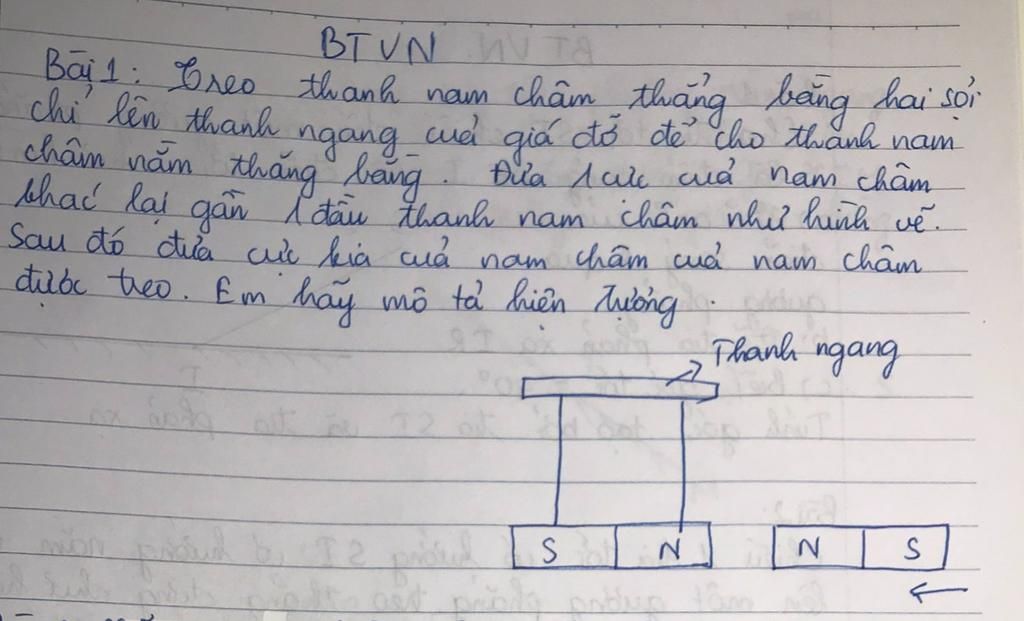 BTVN
Bài 1: Treo thanh nam châm thẳng bằng hai sợi
chỉ lên thanh ngang của giá đỡ để cho thanh nam
châm nằm thăng bằng. Đưa 1 cực của nam châm
khác lại gần 1 đầu thanh nam châm như hình vẽ.
Sau đó đưa cực kia của nam châm của nam châm
được treo. Em hãy mô tả hiện tượng.
Thanh ngang
S N N S